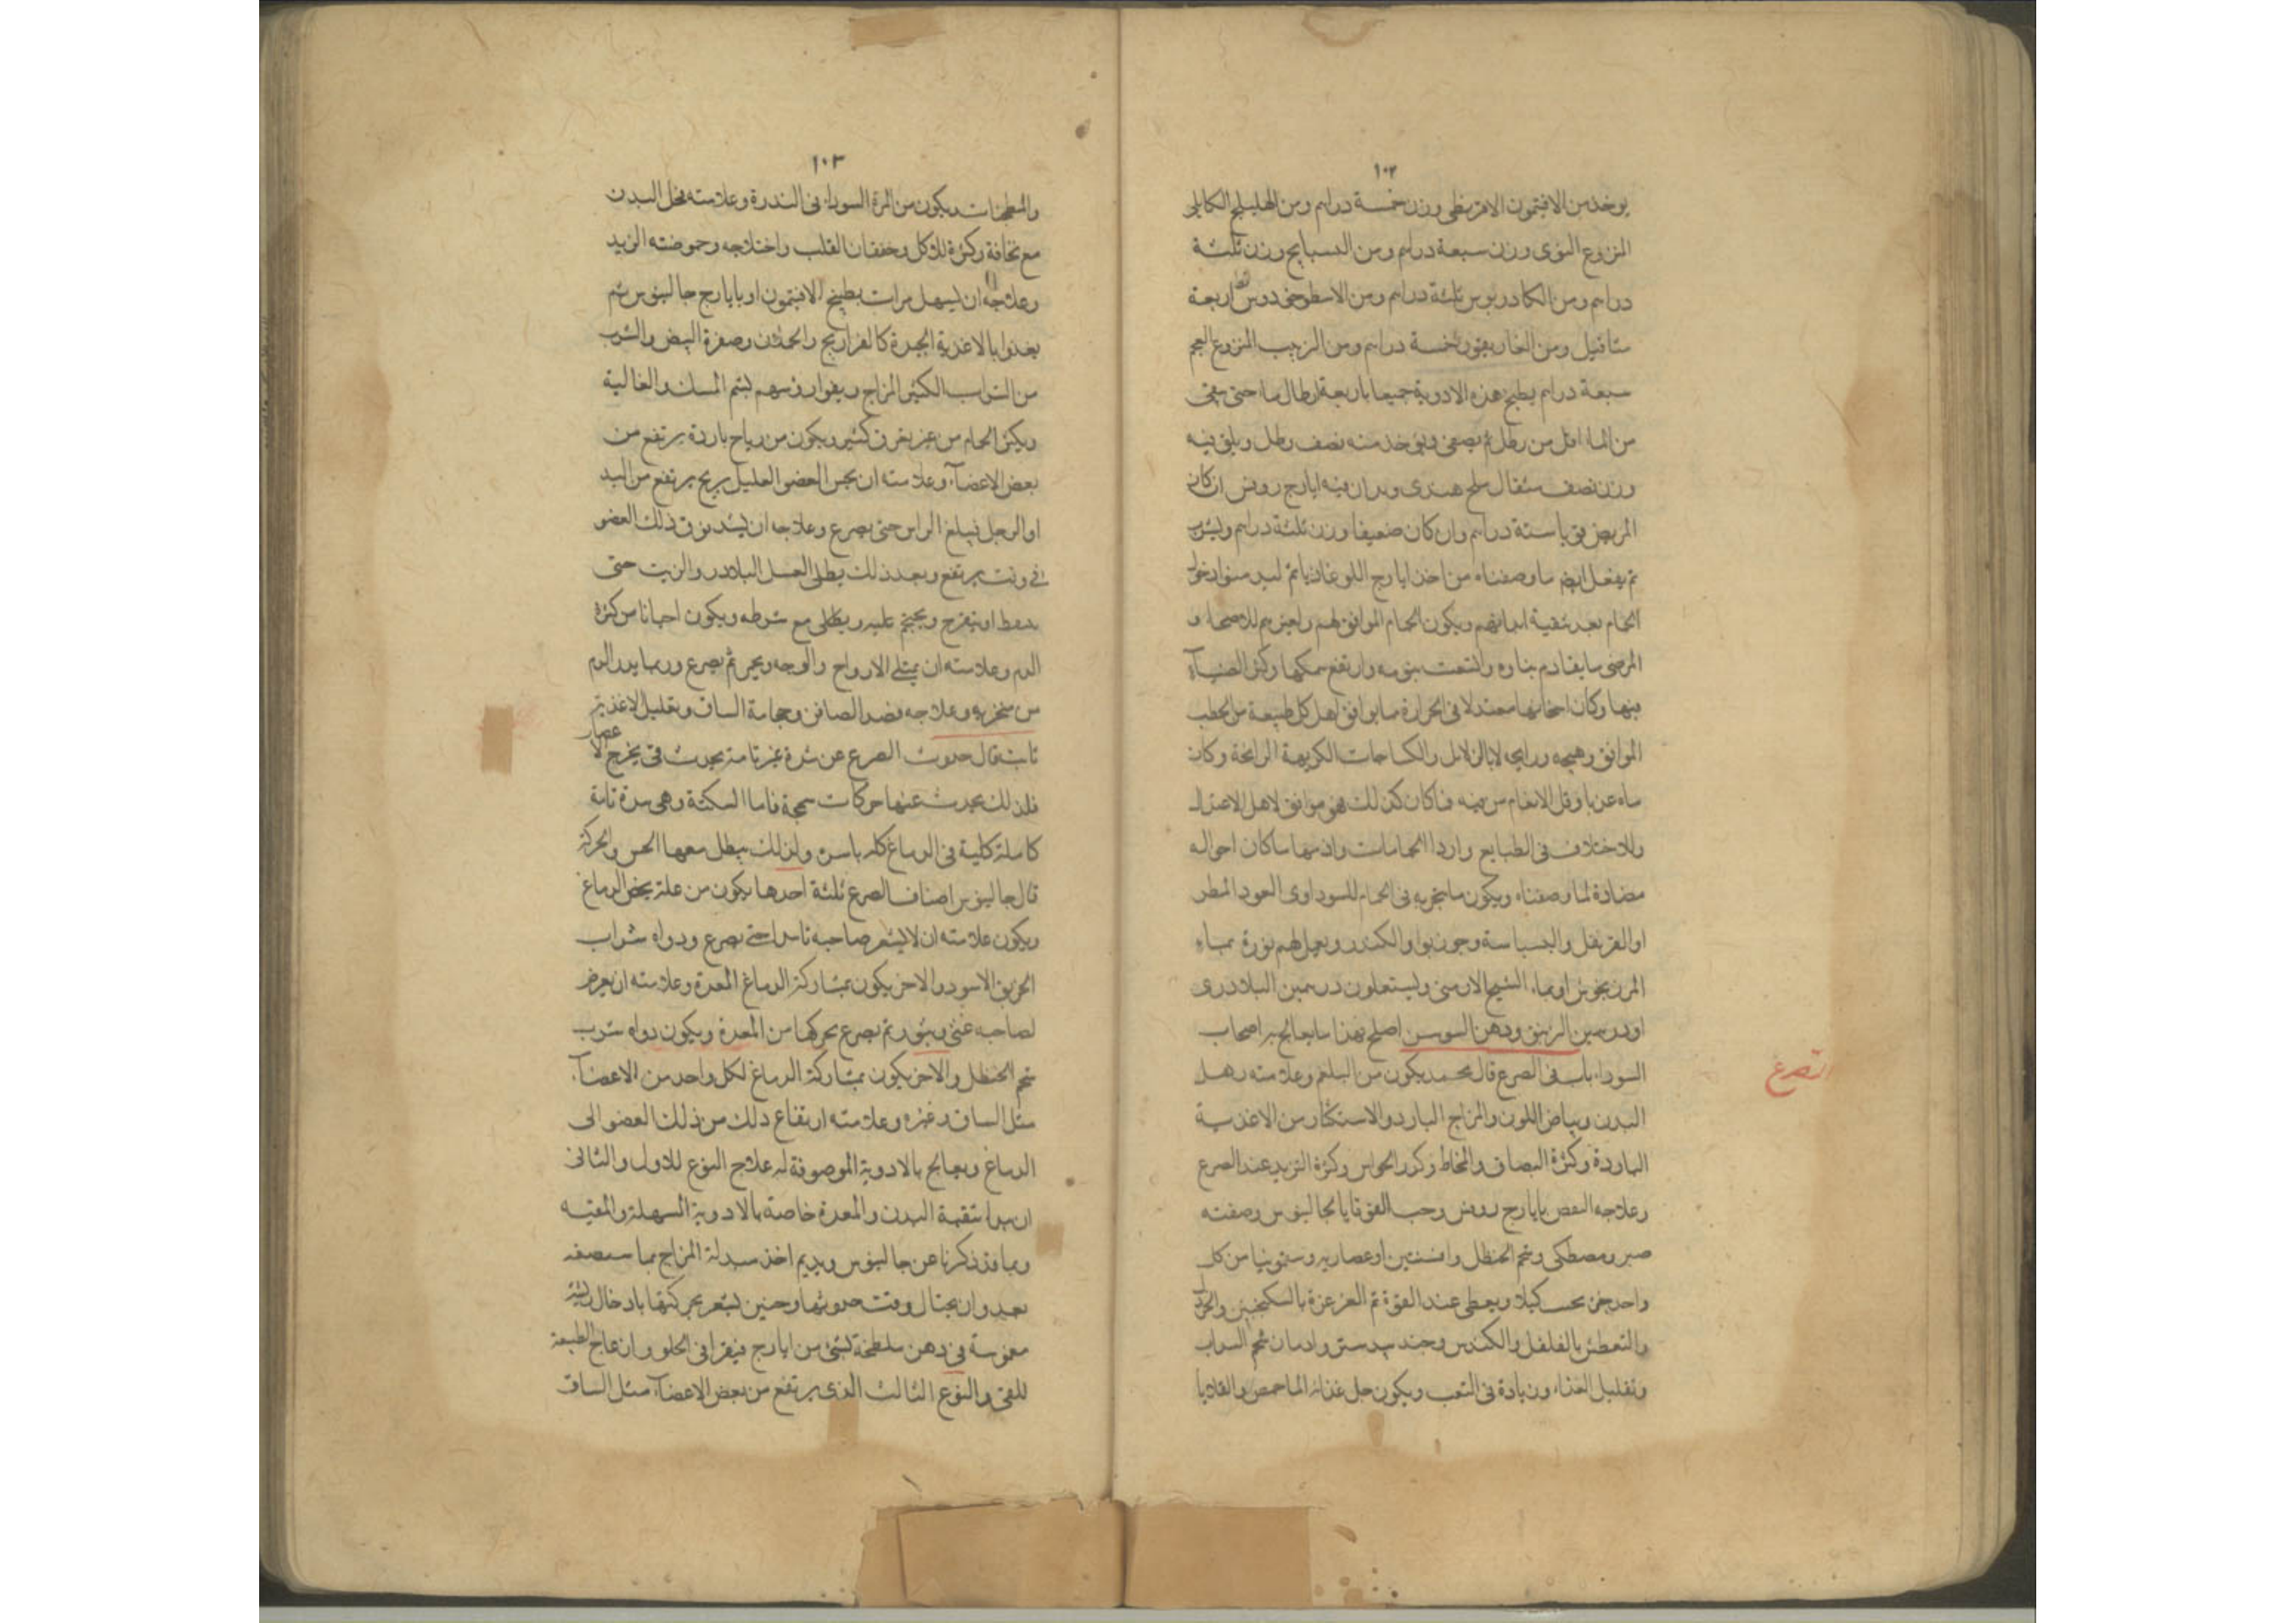 ١٠٢
يوخذ من الافتيمون الاقريطى وزن خمسة دراهم ومن الهليلج الكابلى
المنزوع النوى وزن سبعة دراهم ومن البسبايج وزن ثلثة
دراهم ومن الكمادريوس ثلثة دراهم ومن الاسطوخودوس اربعة
مثاقيل ومن الغاريقون خمسة دراهم ومن الزبيب المنزوع العجم
سبعة دراهم يطبخ هذه الادوية جميعا باربعة ارطال ما حتى يبقى
من الماء اقل من رطل ثم يصفى ويوخذ منه نصف رطل ويلقى فيه
وزن نصف مثقال ملح هندى ويداف فيه ايارج روفس ان كان
المريض قويا ستة دراهم وان كان ضعيفا وزن ثلثة دراهم ويشرب
ثم يفعل ايضا ما وصفناه من اخذ ايارج اللوغاذيا ثم
الحمام بعد تنقية ابدانهم ويكون الحمام الموافق لهم ولغيرهم للاصحاء و
المرضى ما تقادم بناوه واتسعت بيوته وارتفع سمكها وكثر الضياء
فيها وكان اسخانها معتدلا فى الحرارة مما يوافق اهل كل طبيعة من الحطب
الموافق وهيجه ورايحه لا بالزلابل والكساحات الكريهة الرايحة وكان
ماه عذبا وقل الانغام من فيه فما كان كذلك فهو موافق لاهل الاعتدال
والاختلاف فى الطبايع واردا الحمامات واذمها ما كان احواله
مضادة لما وصفناه ويكون ما يتبخر به فى الحمام للسوداوى العود المطر
او القرنفل والبسباسة وجوزبوا والكندر ويعمل لهم نورة بماء
المرزنجوش او بماء الشيح الارمنى ويستعملون درهمين البلادرى
او درهمين الزنبق ودهن السوسن اصلح فهذا ما يعالج به اصحاب
السوداء باب فى الصرع قال محمد يكون من البلغم وعلامته رهل
الصرع
البدن وبياض اللون والمزاج البارد والاستكثار من الاغذية
الباردة وكثرة البصاق والمخاط وكدر الحواس وكثرة التزبد عند الصرع
وعلاجه النفض بايارج روفس وحب القوقايا لجالينوس وصفته
صبر ومصطكى وشحم الحنظل وافسنتين او عصاره وسقمونيا من كل
واحد جزء يحسب كيلا ويعطى عند القوة ثم الغرغرة بالسكنجبين والخردل
والتعطش بالفلفل والكندس وجندبيدستر وادمان شم السداب
وتقليل الغذاء وزيادة فى التعب ويكون جل غذائه الماحمص والقلايا
١٠٣
والمطجنات ويكون من المرة السوداء فى الندرة وعلامته نحل البدن
مع نحافة وكثرة للاكل وخفقان القلب واختلاجه وحموضته الزبد
وعلاجه ان يسهل مرات بطبيخ الافتيمون او بايارج جالينوس ثم
يغذوا بالاغذية الجيدة كالفراريج والحملان وصفرة البيض والشرب
من الشراب الكثير المزاج ويقوا روسهم بشم المسك والغالية
ويكثر الحمام من غير تعرق كثير ويكون من رياح باردة يرتفع من
بعض الاعضاء وعلامته ان يحس العضو العليل بريح يرتفع من اليد
او الرجل فيبلغ الراس حتى يصرع وعلاجه ان يشد فوق ذلك العضو
فى وقت يرتفع وبعد ذلك يطلى العسل البلادر والزيت حتى
ينفط او يتقرح ويحجم عليه ويطلى مع شرطه ويكون احيانا من كثرة
الدم وعلامته ان يمتلى الارواح والوجه ويحمر ثم يصرع وربما يدر الدم
من منخريه وعلاجه فصد الصافن وحجامة الساق وتقليل الاغذية
ثابت قال حدوث الصرع عن سدة غير تامة يحدث فى مخرج الاعصاب
فلذلك يحدث عنها حركات سمجة فاما السكتة وهى سدة تامة
كاملة كلية فى الدماغ كله باسره ولذلك يبطل معها الحس والحركة
قال جالينوس اصناف الصرع ثلثة احدها يكون من علة يخص الدماغ
ويكون علامته ان لا يشعر صاحبه حتى يصرع ودواه شراب
الخربق الاسود والاخر يكون بمشاركة الدماغ المعدة وعلامته ان يعرض
لصاحبه غثى ثم يصرع بحركها من المعدة ويكون دواه شرب
شحم الحنظل والاخر يكون بمشاركة الدماغ لكل واحد من الاعضاء
مثل الساق وغيره وعلامته ارتفاع ذلك من ذلك العضو الى
الدماغ ويعالج بالادوية الموصوفة له علاج النوع للاول والثانى
ان يبدا بتنقية البدن والمعدة خاصة بالادوية المسهلة والمقيئه
وبما قد ذكرنا عن جالينوس ويديم اخذ مبدلة المزاج مما سنصفه
بعد وان يحتال وقت حدوثها وحنين يشعر بحركتها بادخال ريشة
مغموسة فى دهن ملطخة بشى من ايارج فيقرا فى الحلق وازعاج الطبيعة
للقى والنوع الثالث الذى يرتفع من بعض الاعضاء مثل الساق